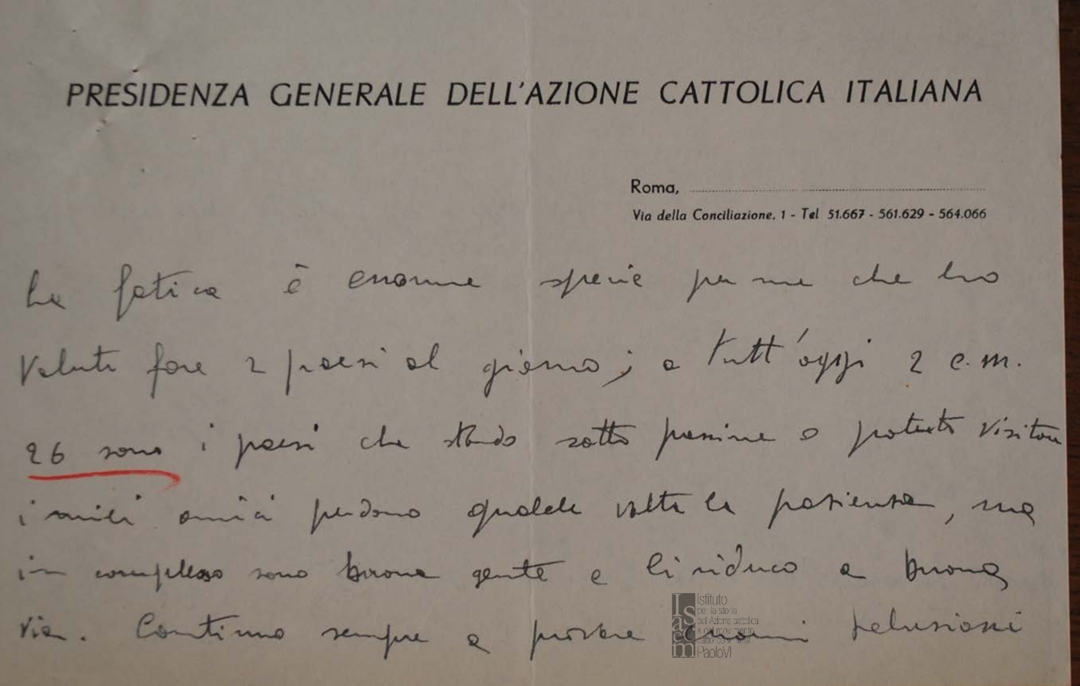 PRESIDENZA GENERALE DELL'AZIONE CATTOLICA ITALIANA
Roma,
Via della Conciliazione, 1 - Tel 51.667 - 561.629 - 564.066
La fatica è enorme specie per me che ho
voluto fare 2 paesi al giorno; a tutt'oggi 2 c.m.
26 sono i paesi che stando sotto pressione ho potuto visitare
i miei amici perdono qualche volta la pazienza, ma
in complesso sono buona gente e li riduco a buona
via. Continuo sempre a provare delusioni
Istituto
per la storia
dell'Azione cattolica
Paolo VI